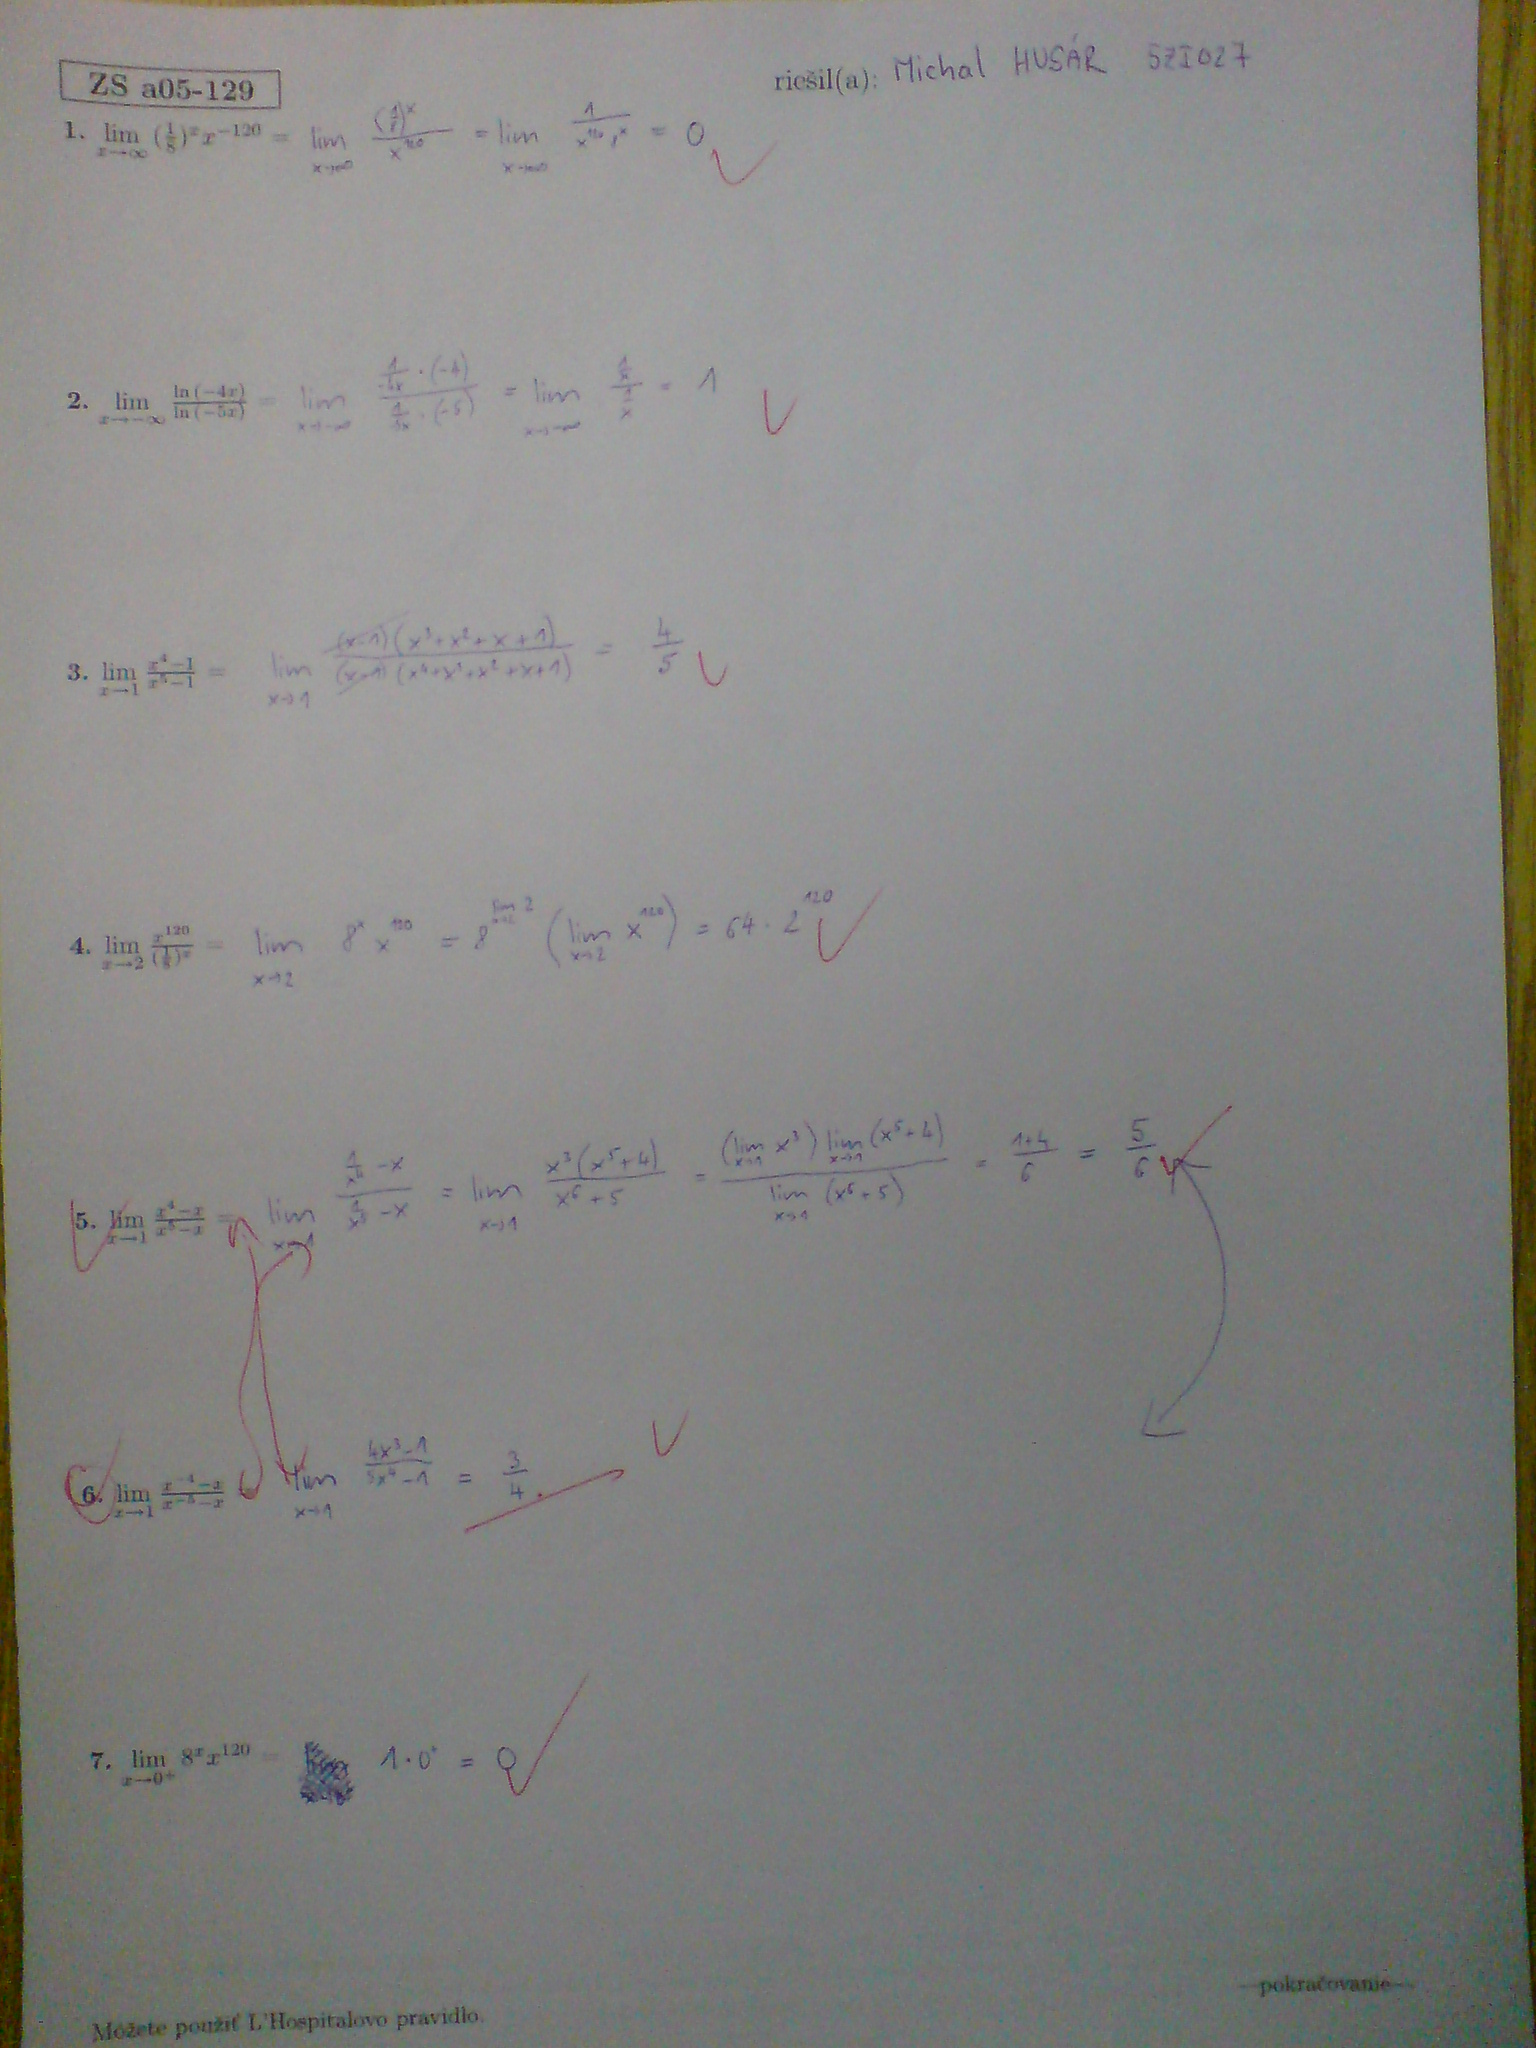 ZS a05-129
riešil(a): Michal HUSÁR 5ZI027
1. lim x→∞ (1/8)^x x^-120 = lim x→∞ (1/8)^x / x^120 = lim x→∞ 1 / = 0
2. lim x→-∞ ln(-4x) / ln(-5x) = lim x→-∞ · (-4) / · (-5) = lim x→-∞ 1/x / 1/x = 1
3. lim x→1 x^4-1 / x^5-1 = lim x→1 (x-1)(x^3+x^2+x+1) / (x-1)(x^4+x^3+x^2+x+1) = 4/5
4. lim x→2 x^120 / (1/8)^x = lim x→2 8^x x^120 = 8^lim x→2 2 (lim x→2 x^120) = 64 · 2^120
5. lim x→1 x^4-x / x^5-x = lim x→1 1/x^4 -x / 1/x^5 -x = lim x→1 x^3(x^5+4) / x^6+5 = (lim x→1 x^3) lim x→1 (x^5+4) / lim x→1 (x^6+5) = 1+4 / 6 = 5/6
6. lim x→1 x^-4-x / x^-5-x = lim x→1 4x^3-1 / 5x^4-1 = 3/4
7. lim x→0+ 8^x x^120 = 1·0+ = 0
—pokračovanie—
Môžete použiť L'Hospitalovo pravidlo.